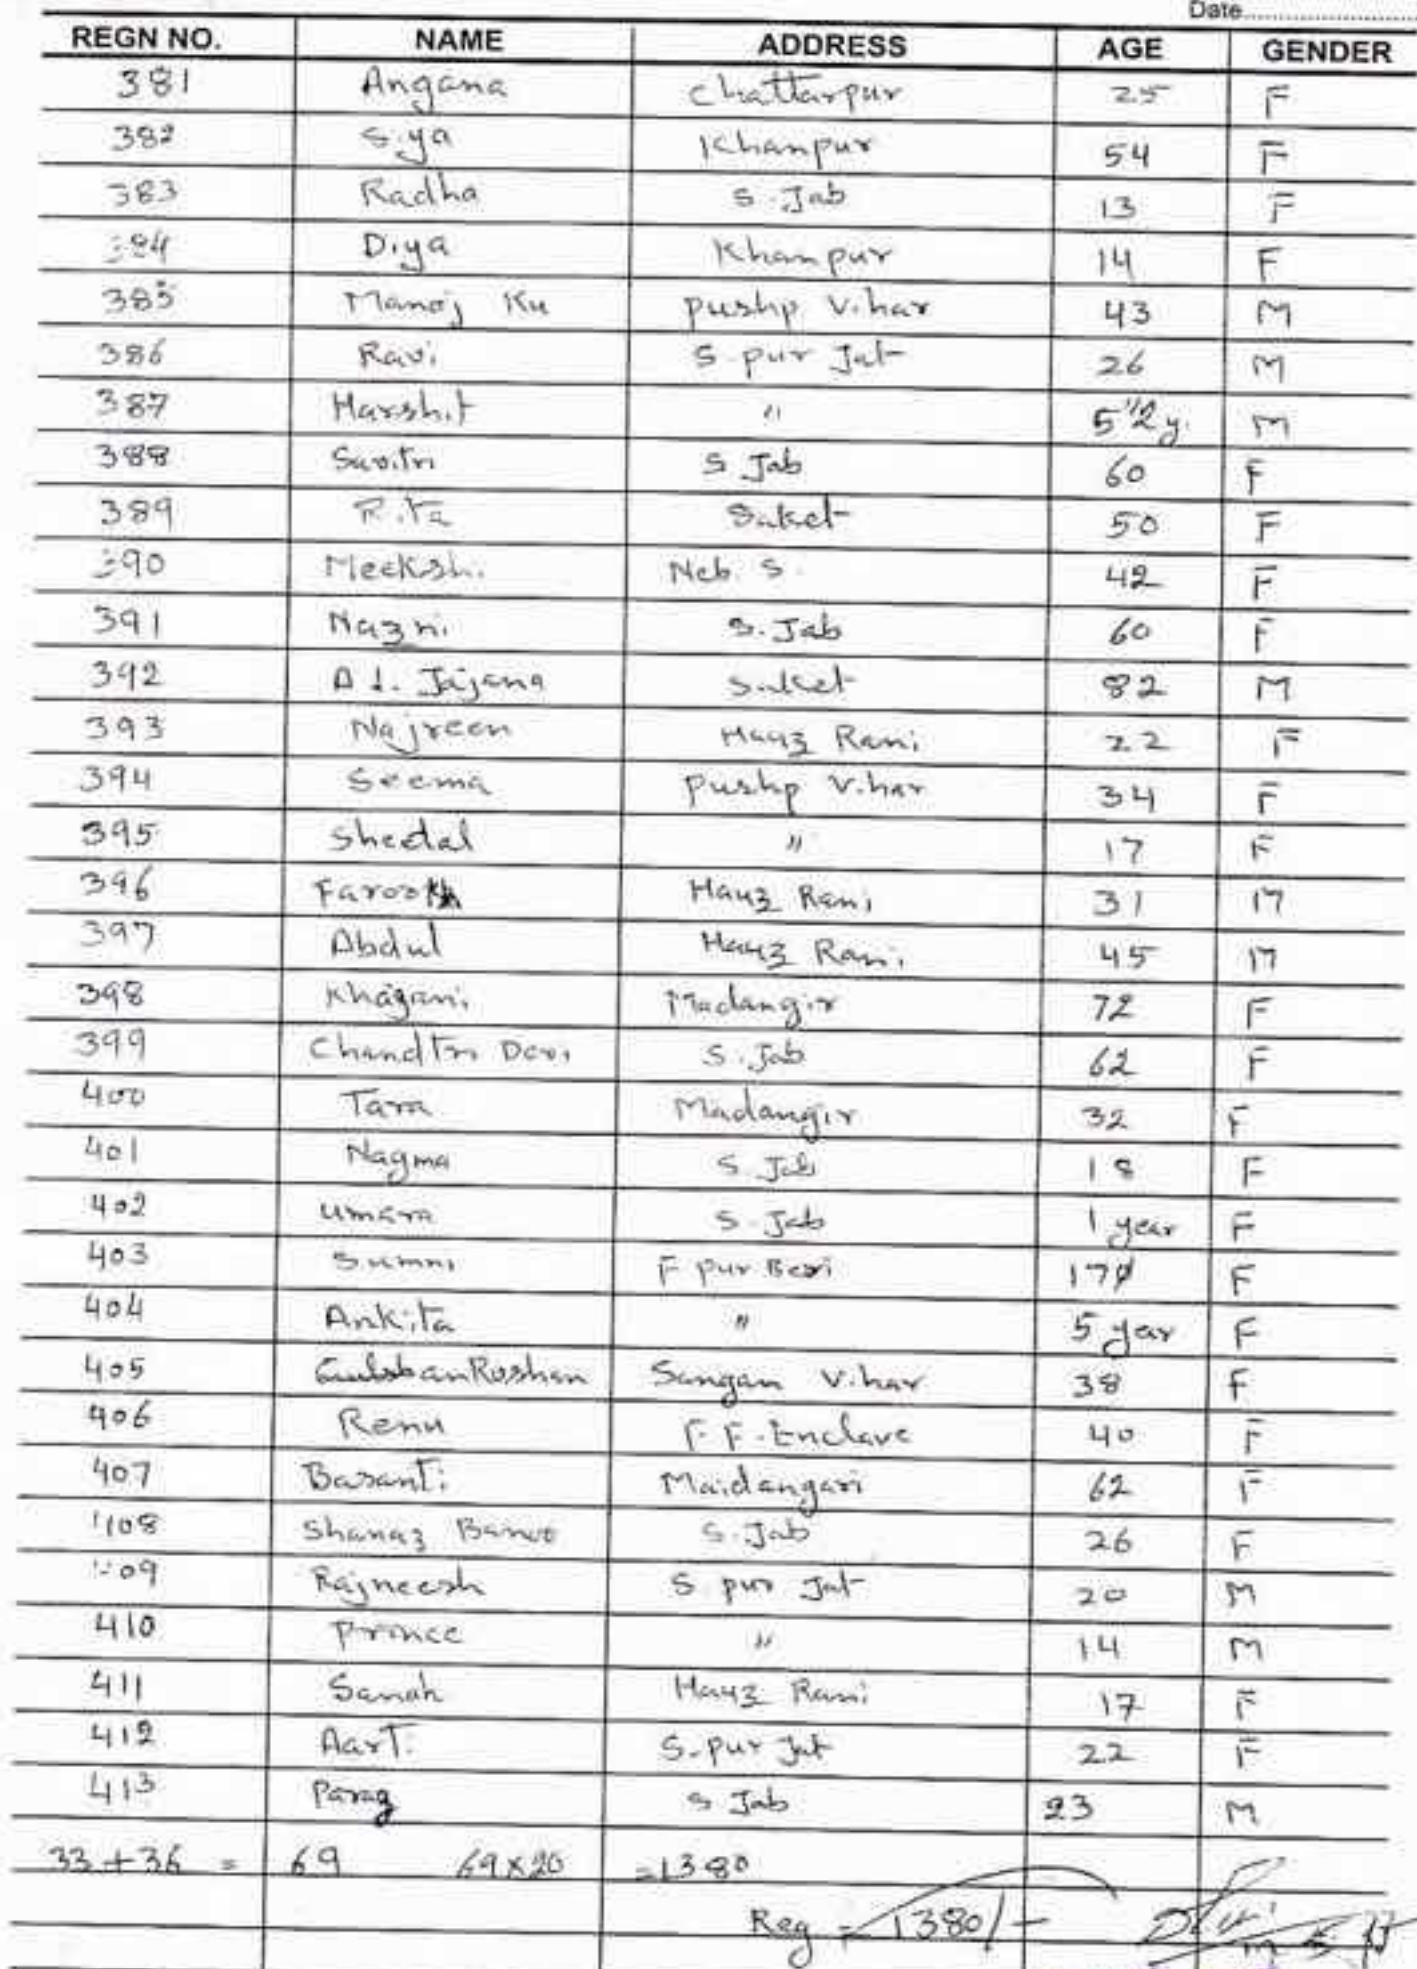 Date
REGN NO. NAME ADDRESS AGE GENDER
381 Angana Chattarpur 25 F
382 Siya Khanpur 54 F
383 Radha S. Jab 13 F
384 Diya Khanpur 14 F
385 Manoj Ku Pushp Vihar 43 M
386 Ravi S. pur Jat 26 M
387 Harshit " 5 1/2 y. M
388 Savitri S Jab 60 F
389 Rita Saket 50 F
390 Meekshi Neb. S. 42 F
391 Nazni S. Jab 60 F
392 Saket 82 M
393 Najreen Hauz Rani 22 F
394 Seema Pushp Vihar 34 F
395 Sheetal " 17 F
396 Farookh Hauz Rani 31 M
397 Abdul Hauz Rani 45 M
398 Khajani Madangir 72 F
399 Devi S. Jab 62 F
400 Tara Madangir 32 F
401 Nagma S. Jab 18 F
402 Umara S. Jab 1 year F
403 Sumni F pur Beri 17 F
404 Ankita " 5 year F
405 Roshan Sangam Vihar 38 F
406 Renu F. F. Enclave 40 F
407 Basanti Maidangari 62 F
408 Shanaz Bano S. Jab 26 F
409 Rajneesh S. pur Jat 20 M
410 Prince " 14 M
411 Sanah Hauz Rani 17 F
412 Aarti S. pur Jat 22 F
413 Parag S Jab 23 M
33 + 36 = 69 69 x 20 = 1380
Reg = 1380/-